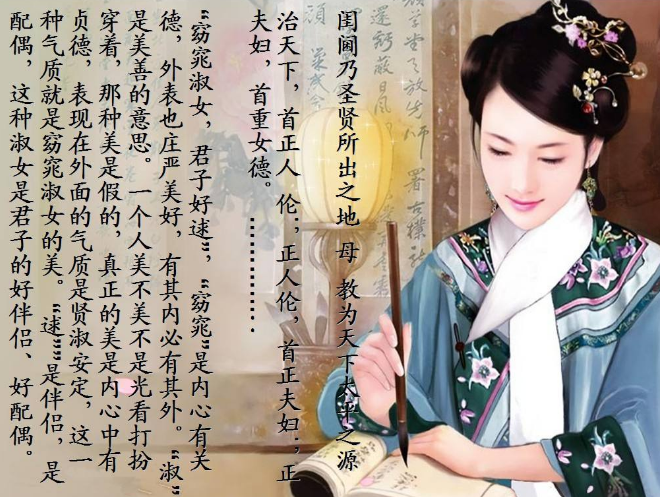 闺阃乃圣贤所出之地 母 教为天下太平之源
治天下，首正人 伦；正人伦，首正夫妇；正
夫妇，首重女德。…………….
“窈窕淑女，君子好逑”，“窈窕”是内心有关
德，外表也庄严美好，有其内必有其外。“淑”
是美善的意思。一个人美不美不是光看打扮
穿着，那种美是假的，真正的美是内心中有
贞德，表现在外面的气质是贤淑安定，这一
种气质就是窈窕淑女的美。 “逑””是伴侣，是
配偶，这种淑女是君子的好伴侣、好配偶。